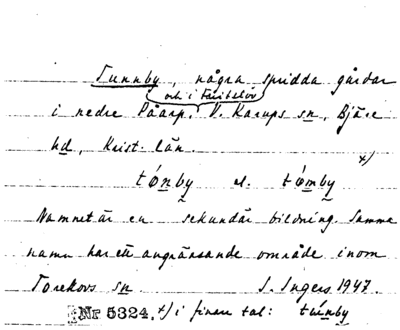 Tunnby, några spridda gårdar
och i Faritslöv
i nedre Påarp, V. Karups sn, Bjäre
hd, Krist. län.
tónby el. tómby x)
Namnet är en sekundär bildning. Samma
namn har ett angränsande område inom
Torekovs sn
I. Ingers 1947.
Nr 5324. x) i finare tal: túnby